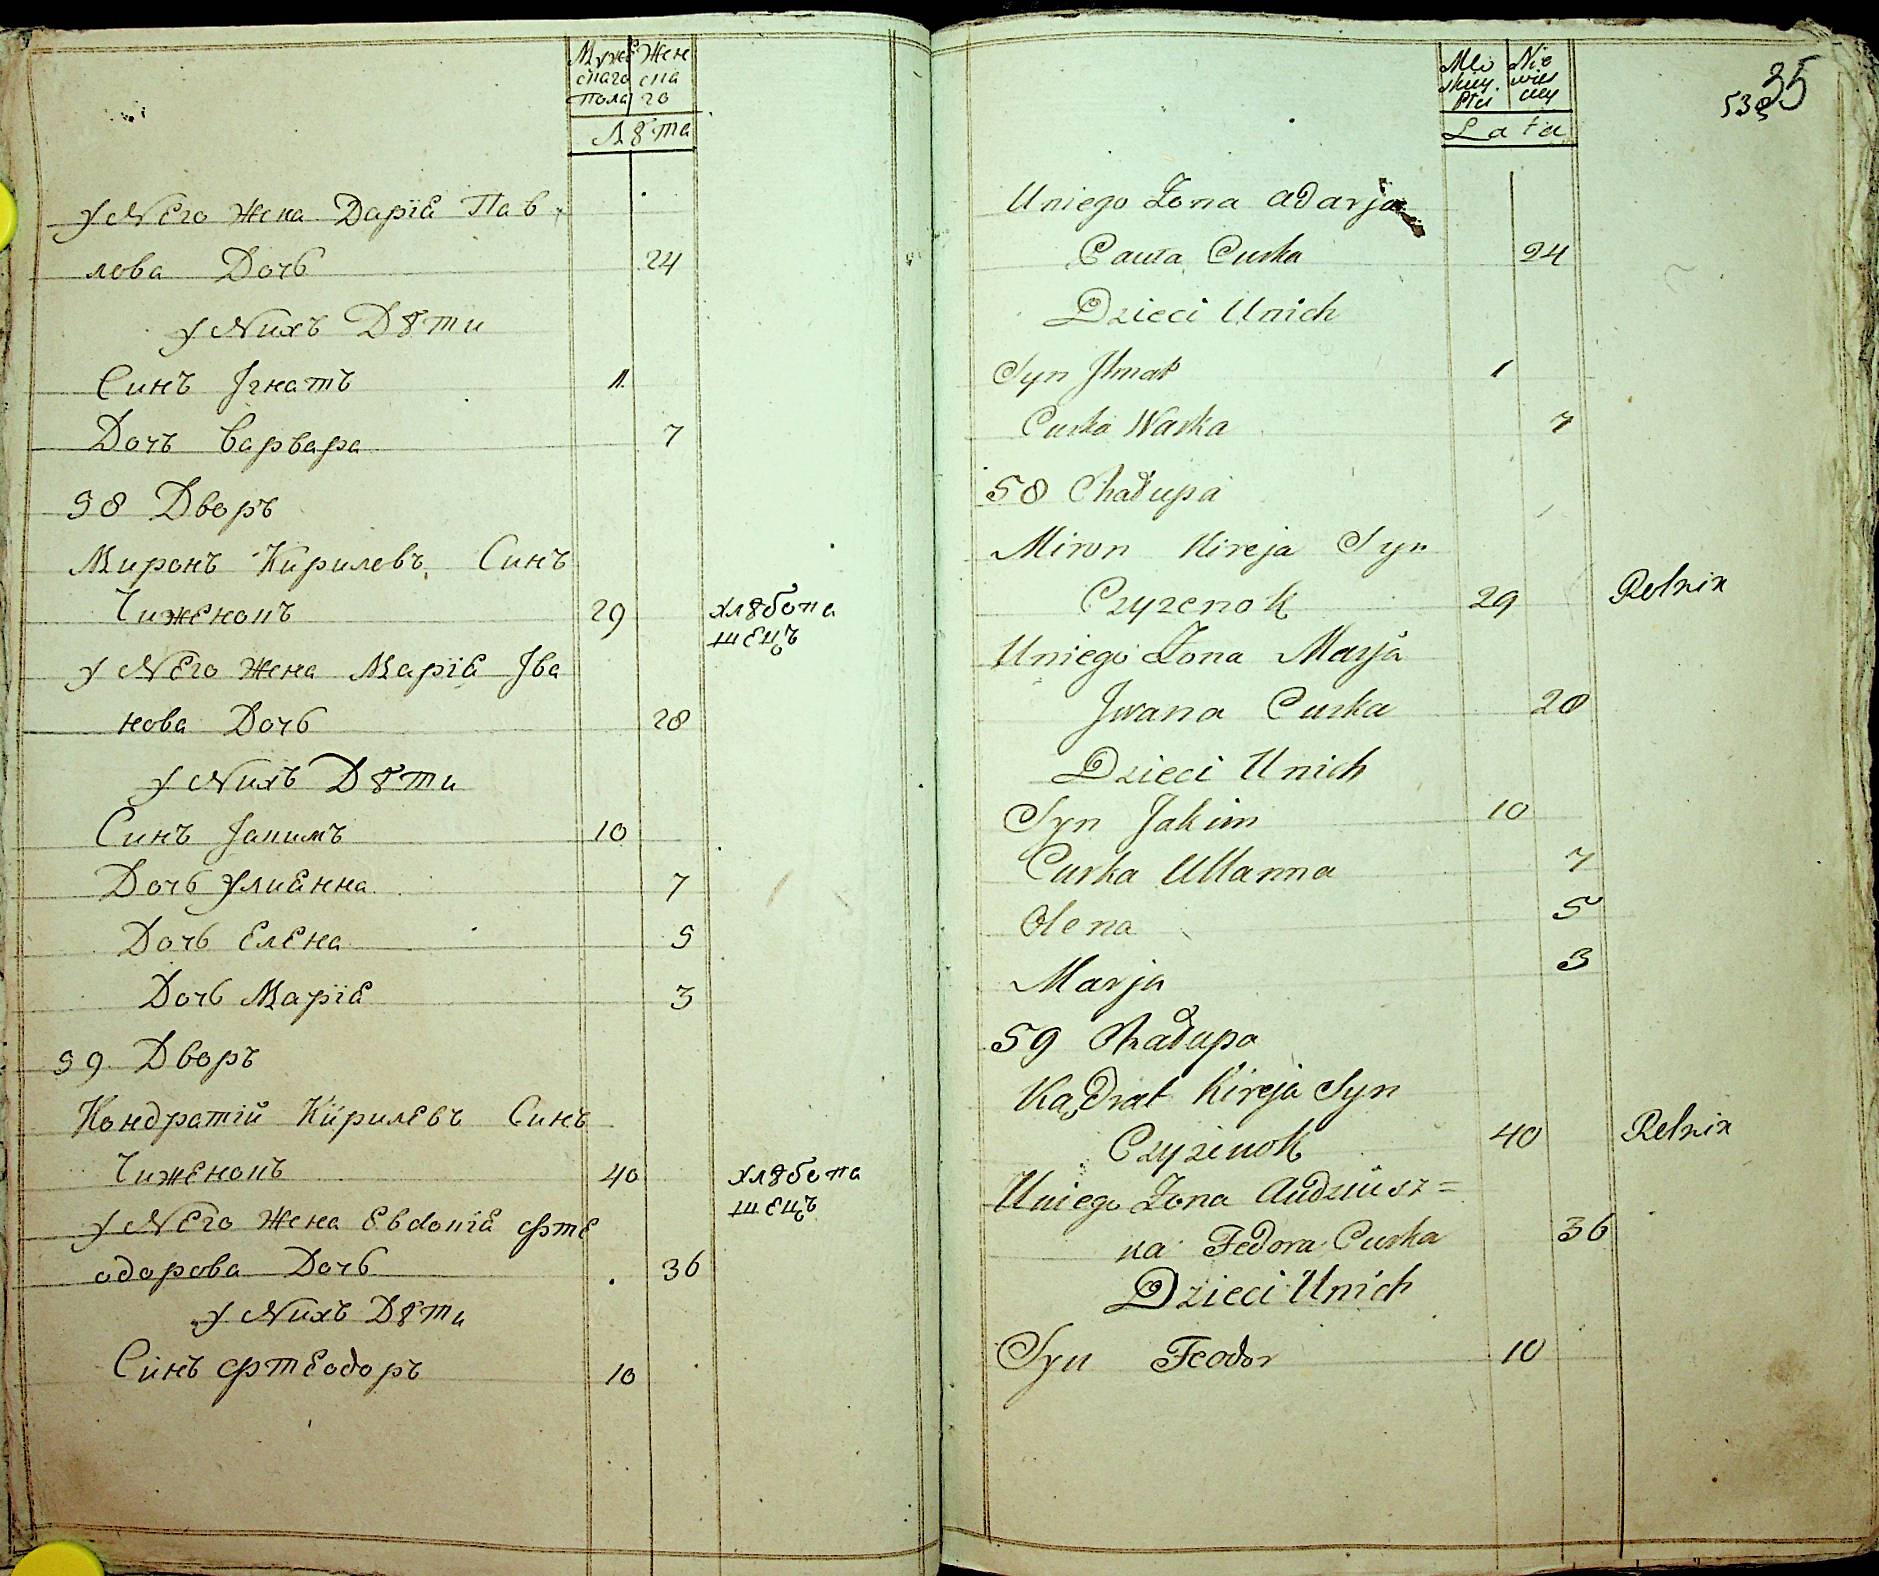 Мужескаго Пола
Женскаго
Лѣта
у Него жена Дарїа Пав
лова Дочь 24
у Нихъ Дѣти
Синъ Ігнатъ 1
Дочъ Варвара 7
58 Дворъ
Миронъ Кирилевъ Синъ
Чиженокъ 29 хлѣбопа
шецъ
у Него жена Марїа Іва
нова Дочь 28
у Нихъ Дѣти
Синъ Іакимъ 10
Дочь Улианна 7
Дочь Елена 5
Дочь Марїа 3
59 Дворъ
Кондратїй Кирилевъ Синъ
Чиженокъ 40 хлѣбопа
шецъ
у Него жена Евдокїа Фте
одорова Дочь 36
у Нихъ Дѣти
Синъ Фтеодоръ 10
35
538
Lata
Uniego Żona adarja
Pauła Curka 24
Dzieci Unich
Syn Ihnat 1
Curka Warka 7
58 Chałupa
Miron Kireja Syn
Czyzenok 29 Rolnik
Uniego Żona Marja
Jwana Curka 28
Dzieci Unich
Syn Jakim 10
Curka Ullanna 7
Olena 5
Marja 3
59 Chałupa
Kądrat Kireja Syn
Czyzenok 40 Rolnik
Uniego Żona Audziusz=
ka Fedora Curka 36
Dzieci Unich
Syn Feodor 10